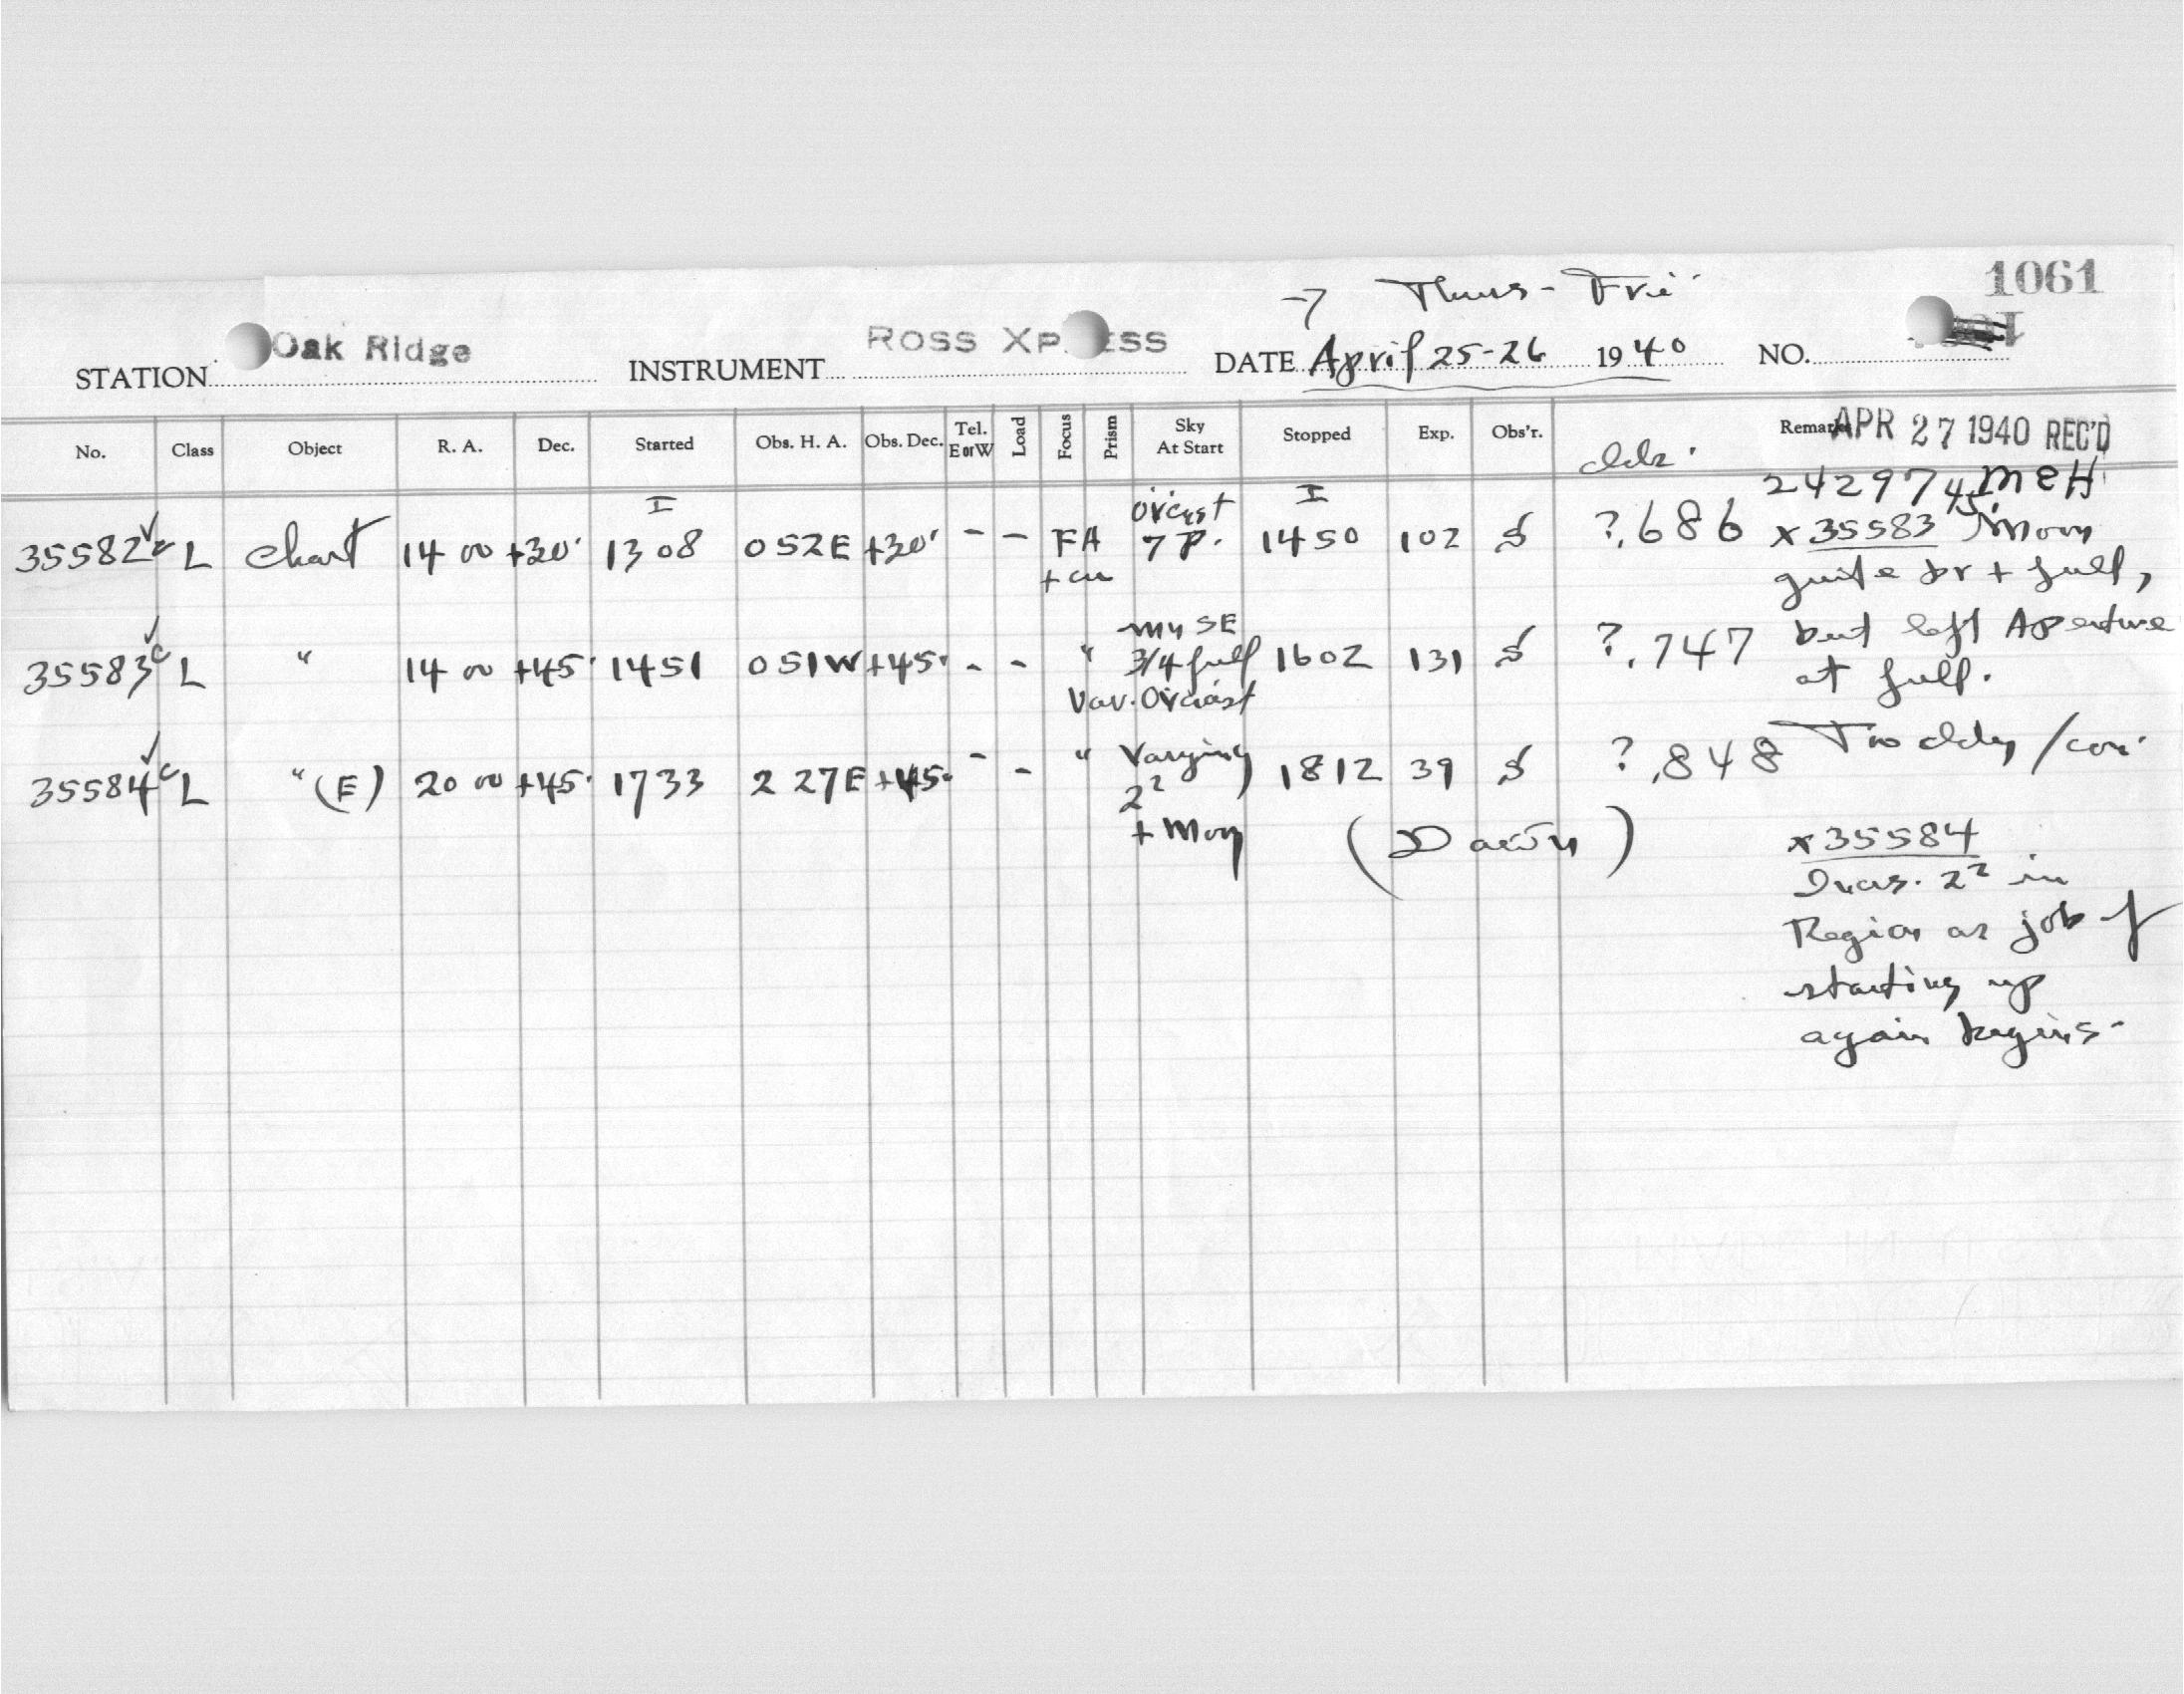 → Thurs - Fri 1061
STATION Oak Ridge INSTRUMENT ROSS XPRESS DATE April 25-26 1940 NO.
No. Class Object R. A. Dec. Started Obs. H. A. Obs. Dec. Tel. E or W Load Focus Prism Sky At Start Stopped Exp. Obs'r. Remarks APR 27 1940 REC'D
I ovcast I 2429745 MEH
35582 ✓ c L Chart 14 00 +30° 1308 0 52E +30° - - FA 7 P. 1450 102 S ?.686 x 35583 Moon
+ cu quite br + full,
my SE but left Aperture
35583 ✓ c L " 14 00 +45° 1451 0 51W +45° - - " 3/4 full 1602 131 S ?.747 at full.
Var. Ovcast
35584 ✓ c L " (E) 20 00 +45° 1733 2 27E +45° - - " Varying 1812 39 S ?.848 Too cldy /
2²
+ Moon (Dawn) x 35584
2² in
Region as job of
starting up
again begins.